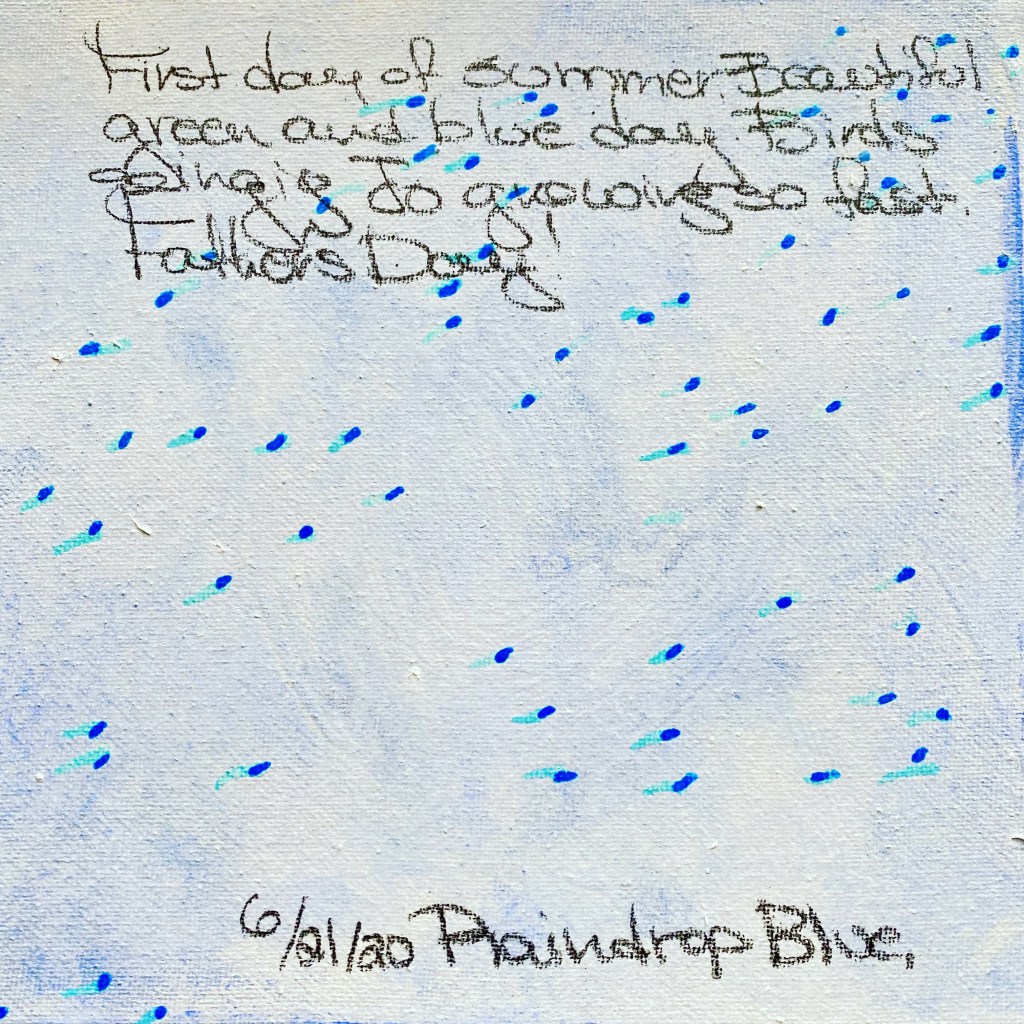 First day of summer. Beautiful
green and blue day Birds
singing Jo growing so fast.
Fathers Day!
6/21/20 Raindrop Blue,